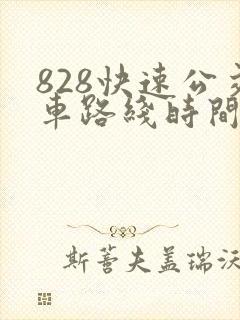 828快速公交
車路綫時間
斯蒼夫盖瑞沃